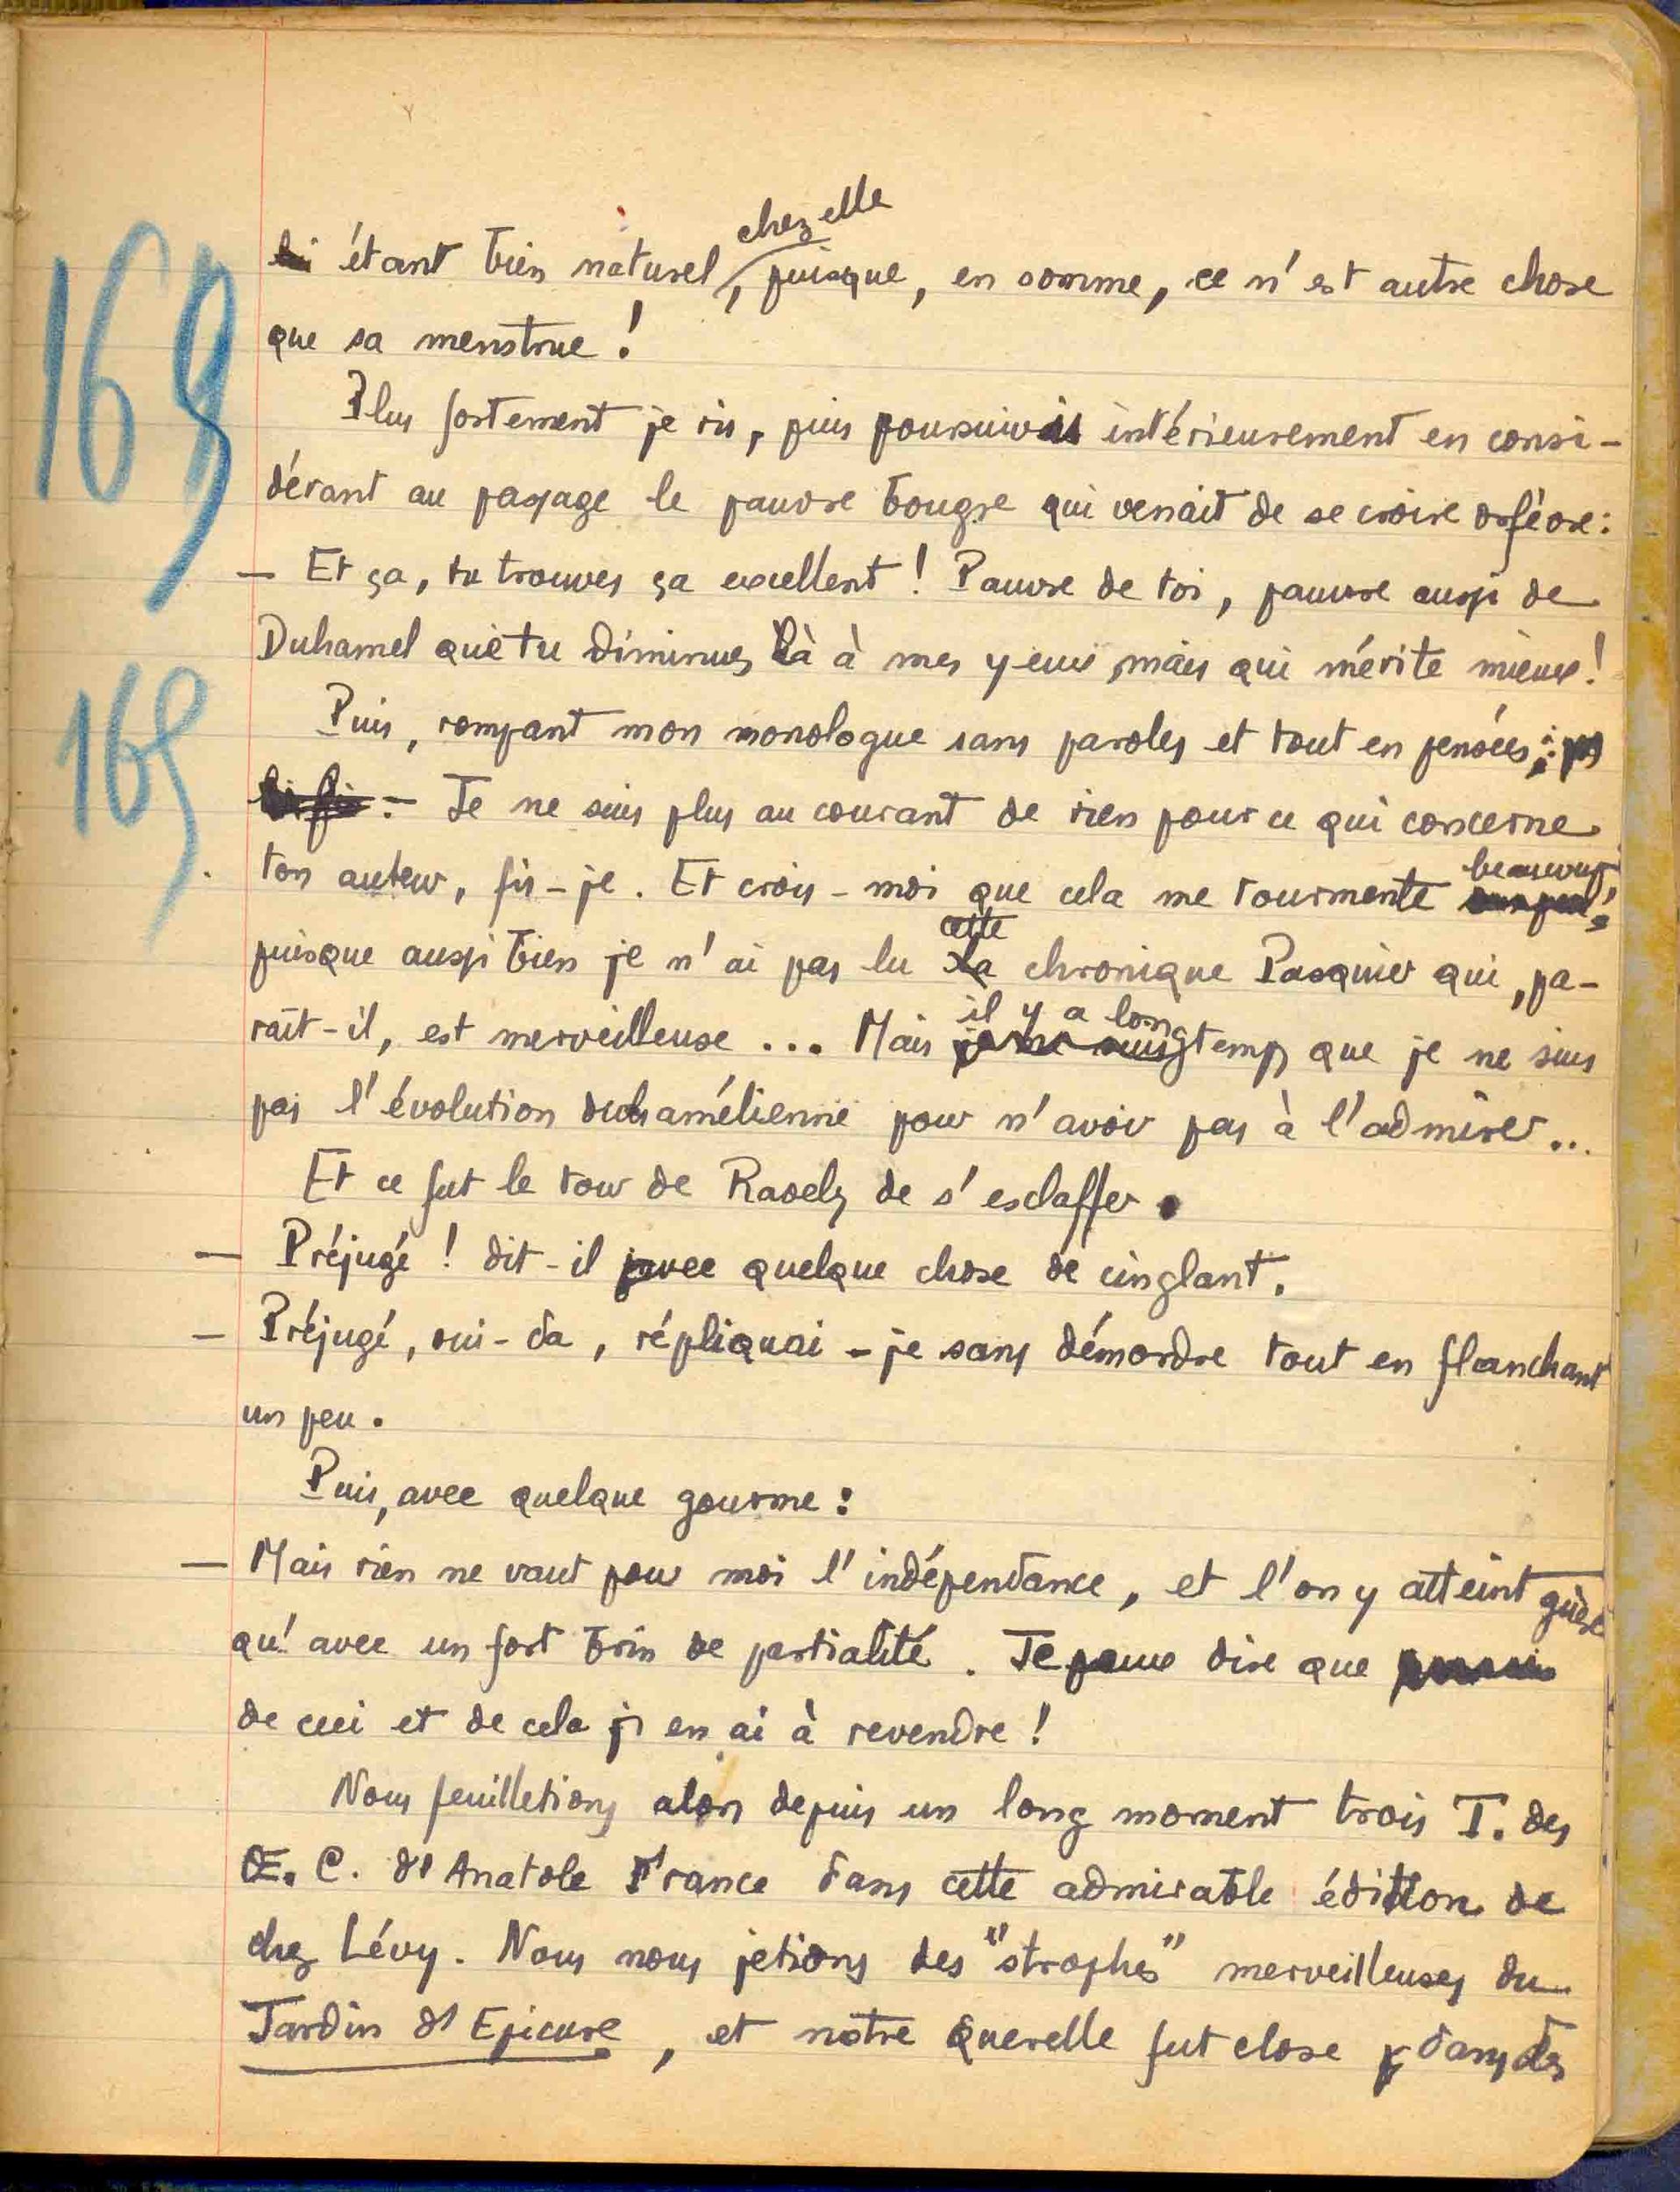 168
169
étant bien naturel chez elle, puisque, en somme, ce n'est autre chose
que sa menstrue !
Plus fortement je ris, puis poursuivis intérieurement en consi-
dérant au passage le pauvre bougre qui venait de se croire orfèvre :
— Et ça, tu trouves ça excellent ! Pauvre de toi, pauvre aussi de
Duhamel que tu diminues là à mes yeux, mais qui mérite mieux !
Puis, rompant mon monologue sans paroles et tout en pensées :
— Je ne suis plus au courant de rien pour ce qui concerne
ton auteur, fis-je. Et crois-moi que cela me tourmente beaucoup,
puisque aussi bien je n'ai pas lu cette chronique Pasquier qui, pa-
raît-il, est merveilleuse ... Mais il y a longtemps que je ne suis
pas l'évolution duhamélienne pour n'avoir pas à l'admirer ...
Et ce fut le tour de Rabely de s'esclaffer.
— Préjugé ! dit-il avec quelque chose de cinglant.
— Préjugé, oui-da, répliquai-je sans démordre tout en flanchant
un peu.
Puis, avec quelque gourme :
— Mais rien ne vaut pour moi l'indépendance, et l'on y atteint guère
qu'avec un fort brin de partialité. Je peux dire que
de ceci et de cela j'en ai à revendre !
Nous feuilletions alors depuis un long moment trois T. des
Œ. C. d'Anatole France dans cette admirable édition de
chez Lévy. Nous nous jetions des "strophes" merveilleuses du
Jardin d'Epicure, et notre querelle fut close dans des